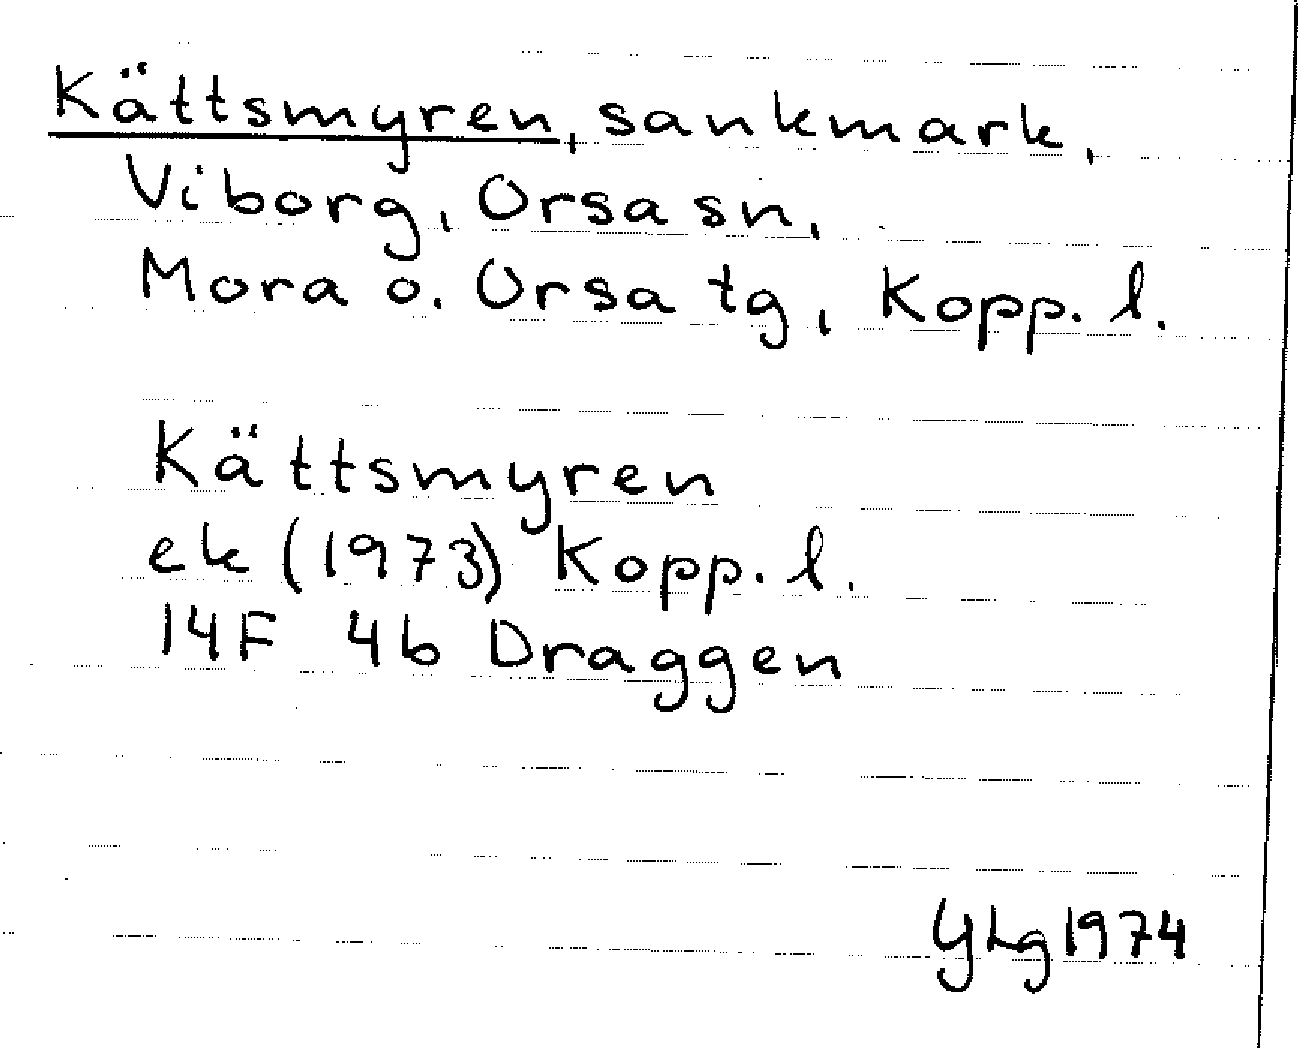 Kättsmyren, sankmark,
Viborg, Orsa sn,
Mora o. Orsa tg, Kopp. l.
Kättsmyren
ek (1973) Kopp. l.
14F 4b Draggen
YLg 1974